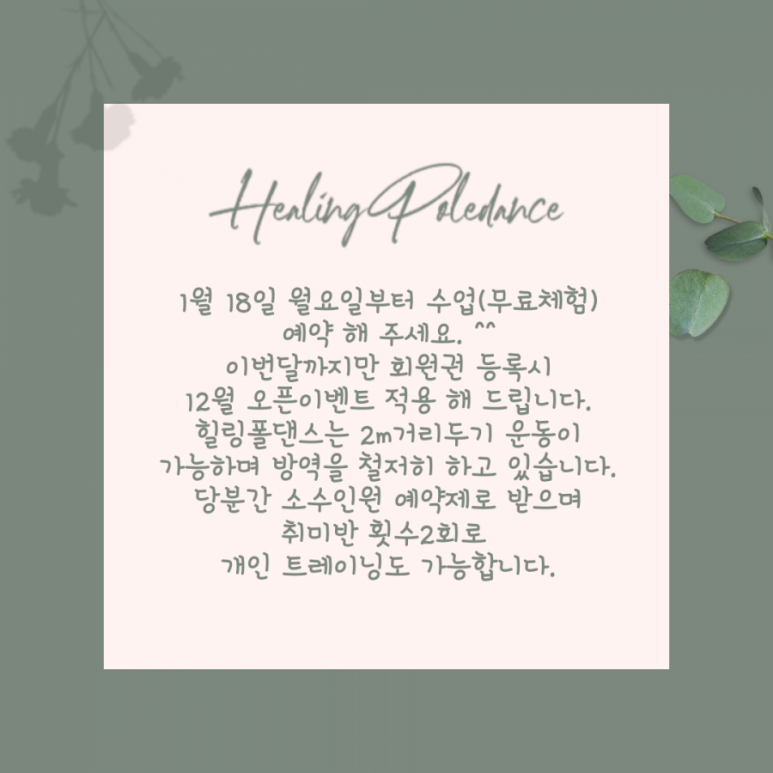 Healing Poledance
1월 18일 월요일부터 수업(무료체험)
예약 해 주세요. ^^
이번달까지만 회원권 등록시
12월 오픈이벤트 적용 해 드립니다.
힐링폴댄스는 2m거리두기 운동이
가능하며 방역을 철저히 하고 있습니다.
당분간 소수인원 예약제로 받으며
취미반 횟수2회로
개인 트레이닝도 가능합니다.